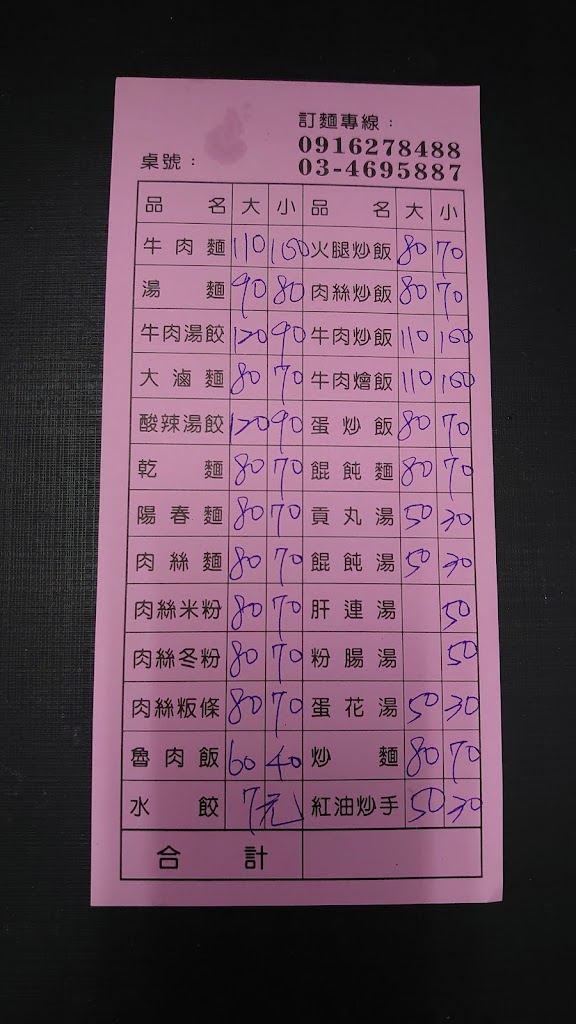 訂麵專線：
0916278488
桌號： 03-4695887
品名 大 小 品名 大 小
牛肉麵 110 100 火腿炒飯 80 70
湯麵 90 80 肉絲炒飯 80 70
牛肉湯餃 120 90 牛肉炒飯 110 100
大滷麵 80 70 牛肉燴飯 110 100
酸辣湯餃 120 90 蛋炒飯 80 70
乾麵 80 70 餛飩麵 80 70
陽春麵 80 70 貢丸湯 50 30
肉絲麵 80 70 餛飩湯 50 30
肉絲米粉 80 70 肝連湯 50
肉絲冬粉 80 70 粉腸湯 50
肉絲粄條 80 70 蛋花湯 50 30
魯肉飯 60 40 炒麵 80 70
水餃 7元 紅油炒手 50 30
合計